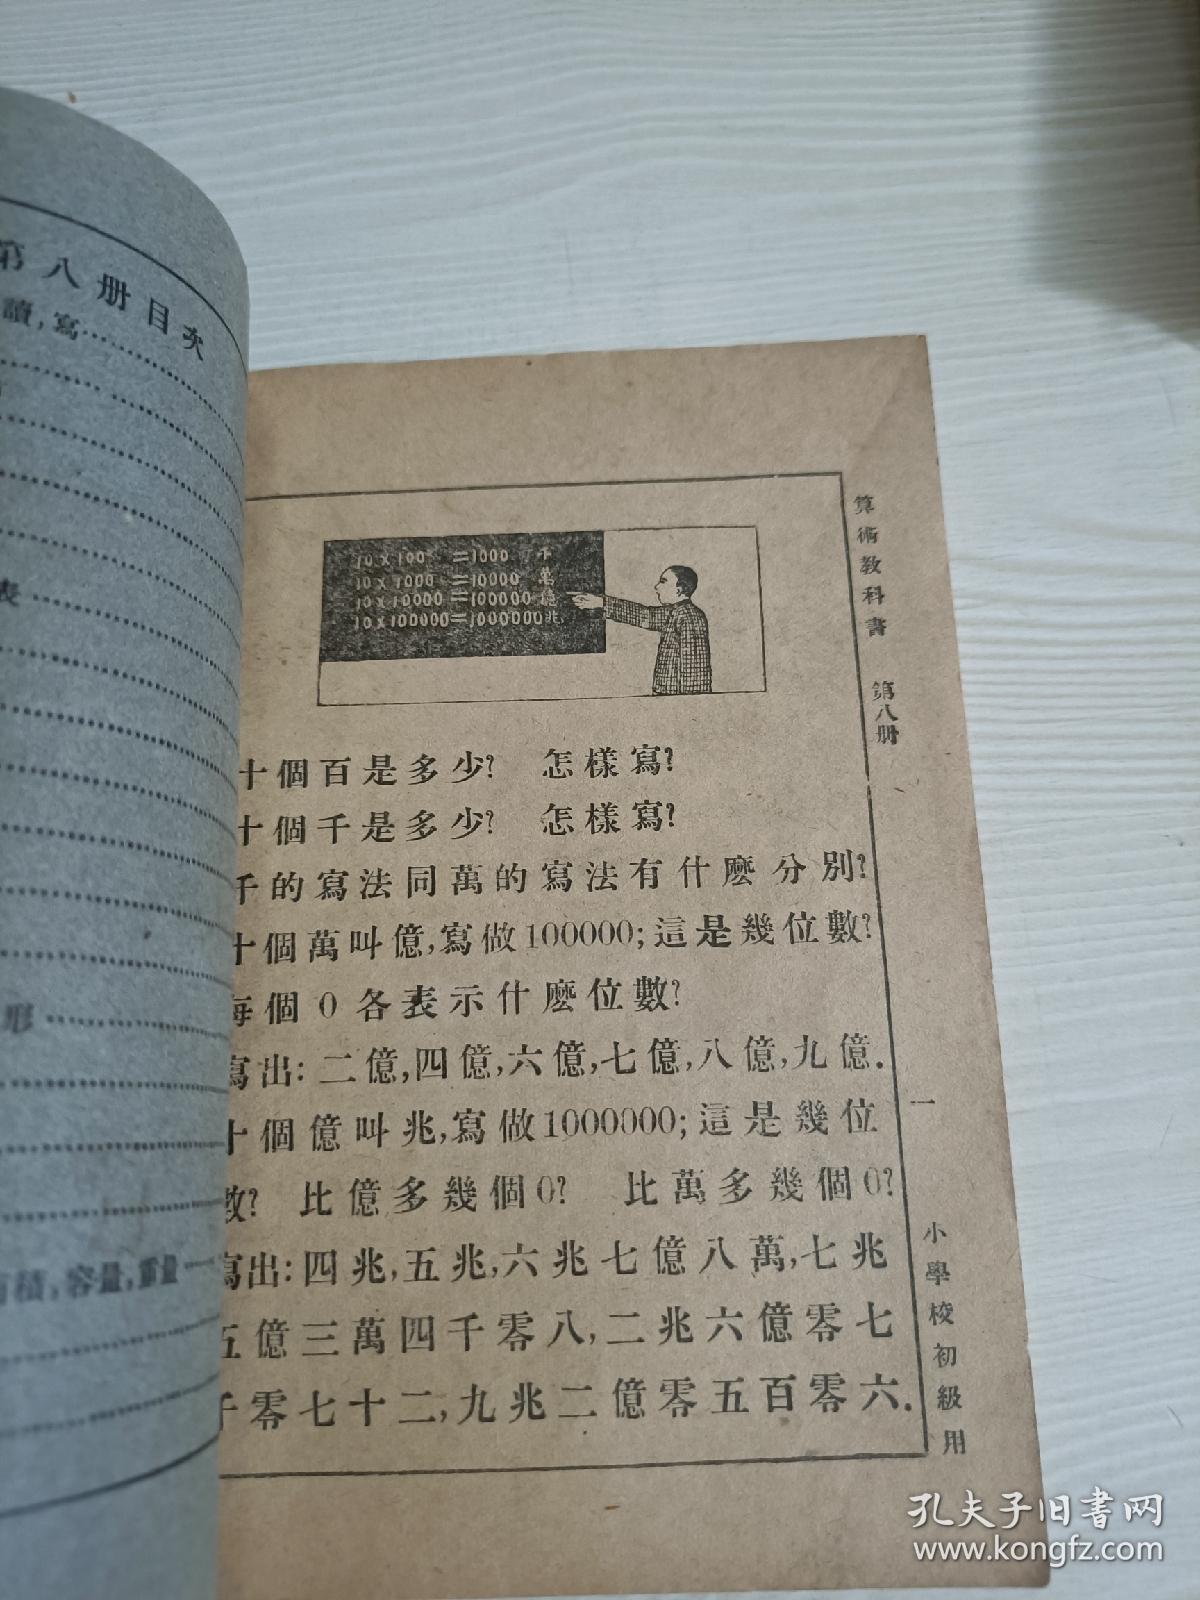 第八册目次
讀,寫
表
形
積,容量,重量
10×100 =1000 千
10×1000 =10000 萬
10×10000 =100000 億
10×100000=1000000兆
十個百是多少? 怎樣寫?
十個千是多少? 怎樣寫?
千的寫法同萬的寫法有什麽分別?
十個萬叫億,寫做100000;這是幾位數?
每個0各表示什麽位數?
寫出:二億,四億,六億,七億,八億,九億.
十個億叫兆,寫做1000000;這是幾位
數? 比億多幾個0? 比萬多幾個0?
寫出:四兆,五兆,六兆七億八萬,七兆
五億三萬四千零八,二兆六億零七
千零七十二,九兆二億零五百零六.
算術教科書 第八册
一
小學校初級用
孔夫子旧书网
www.kongfz.com